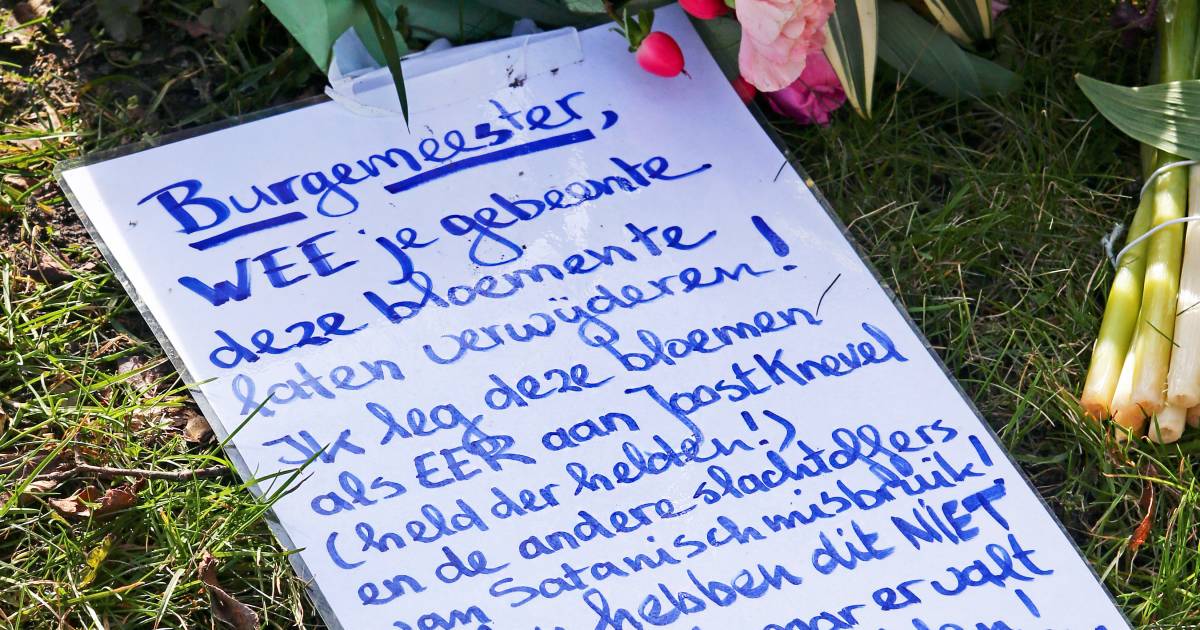 Burgemeester,
WEE je gebeente
deze bloemente
laten verwijderen!
Ik leg deze bloemen
als EER aan Joost Knevel
(held der helden!)
en de andere slachtoffers
van Satanischmisbruik!
hebben dit NIET
maar er valt